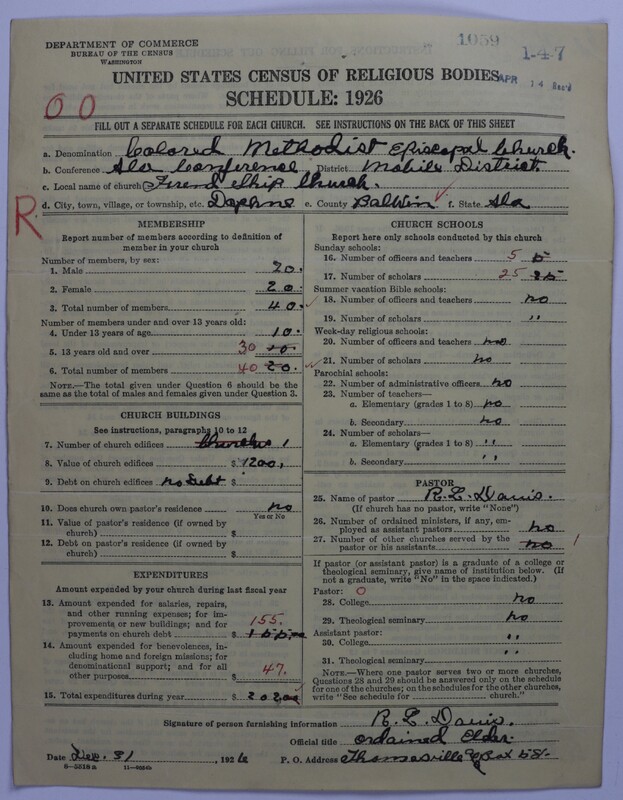 DEPARTMENT OF COMMERCE
BUREAU OF THE CENSUS
WASHINGTON
1059
1-4-7
UNITED STATES CENSUS OF RELIGIOUS BODIES
APR 14 Rec'd
SCHEDULE: 1926
00
FILL OUT A SEPARATE SCHEDULE FOR EACH CHURCH. SEE INSTRUCTIONS ON THE BACK OF THIS SHEET
a. Denomination Colored Methodist Episcopal Church.
b. Conference Ala Conference District Mobile District.
c. Local name of church Friend Ship Church.
d. City, town, village, or township, etc. Daphne e. County Baldwin f. State Ala
R.
MEMBERSHIP
Report number of members according to definition of
member in your church
Number of members, by sex:
1. Male 20.
2. Female 20.
3. Total number of members 40.
Number of members under and over 13 years old:
4. Under 13 years of age 10.
5. 13 years old and over 30 10
6. Total number of members 40 20.
NOTE.—The total given under Question 6 should be the
same as the total of males and females given under Question 3.
CHURCH BUILDINGS
See instructions, paragraphs 10 to 12
7. Number of church edifices Churches 1
8. Value of church edifices $ 1200,
9. Debt on church edifices no Debt $
10. Does church own pastor's residence no
Yes or No
11. Value of pastor's residence (if owned by
church) $
12. Debt on pastor's residence (if owned by
church) $
EXPENDITURES
Amount expended by your church during last fiscal year
13. Amount expended for salaries, repairs,
and other running expenses; for im-
provements or new buildings; and for
payments on church debt $ 155.
14. Amount expended for benevolences, in-
cluding home and foreign missions; for
denominational support; and for all
other purposes $ 47.
15. Total expenditures during year $ 202
CHURCH SCHOOLS
Report here only schools conducted by this church
Sunday schools:
16. Number of officers and teachers 5 5
17. Number of scholars 25 25
Summer vacation Bible schools:
18. Number of officers and teachers no
19. Number of scholars "
Week-day religious schools:
20. Number of officers and teachers no
21. Number of scholars no
Parochial schools:
22. Number of administrative officers no
23. Number of teachers—
a. Elementary (grades 1 to 8) no
b. Secondary no
24. Number of scholars—
a. Elementary (grades 1 to 8) "
b. Secondary "
PASTOR
25. Name of pastor R. L. Davis.
(If church has no pastor, write "None")
26. Number of ordained ministers, if any, em-
ployed as assistant pastors no
27. Number of other churches served by the
pastor or his assistants no 1
If pastor (or assistant pastor) is a graduate of a college or
theological seminary, give name of institution below. (If
not a graduate, write "No" in the space indicated.)
Pastor: 0
28. College no
29. Theological seminary no
Assistant pastor:
30. College "
31. Theological seminary "
NOTE.—Where one pastor serves two or more churches,
Questions 28 and 29 should be answered only on the schedule
for one of the churches; on the schedules for the other churches,
write "See schedule for church."
Signature of person furnishing information R. L. Davis.
Official title ordained Elder.
Date Dec. 31, 1926 P. O. Address Thomasville Box 58.